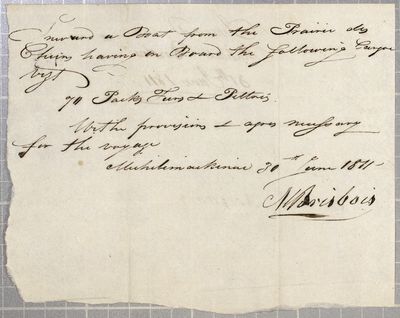 Inward a Boat from the Prairie des
Chiens having on Board the following Cargoe
Vizt
70 Packs Furs & Peltries
With provisions & apres necessary
for the voyage
Michilimackinac 30th June 1811
MBrisbois